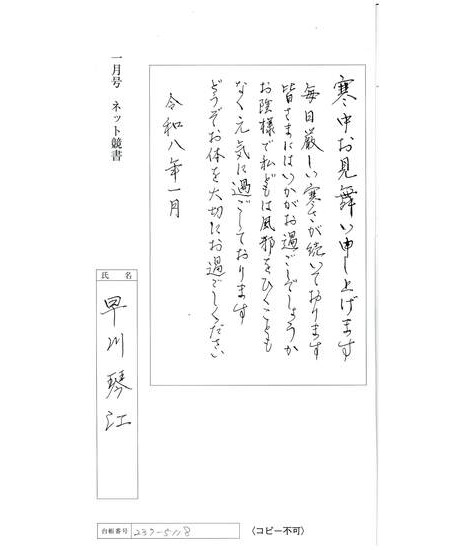 寒中お見舞い申し上げます
毎日厳しい寒さが続いております
皆さまにはいかがお過ごしでしょうか
お陰様で私どもは風邪をひくことも
なく元気に過ごしております
どうぞお体を大切にお過ごしください
令和八年一月
一月号 ネット競書
氏名
早川琴江
台帳番号 237-5118
〈コピー不可〉